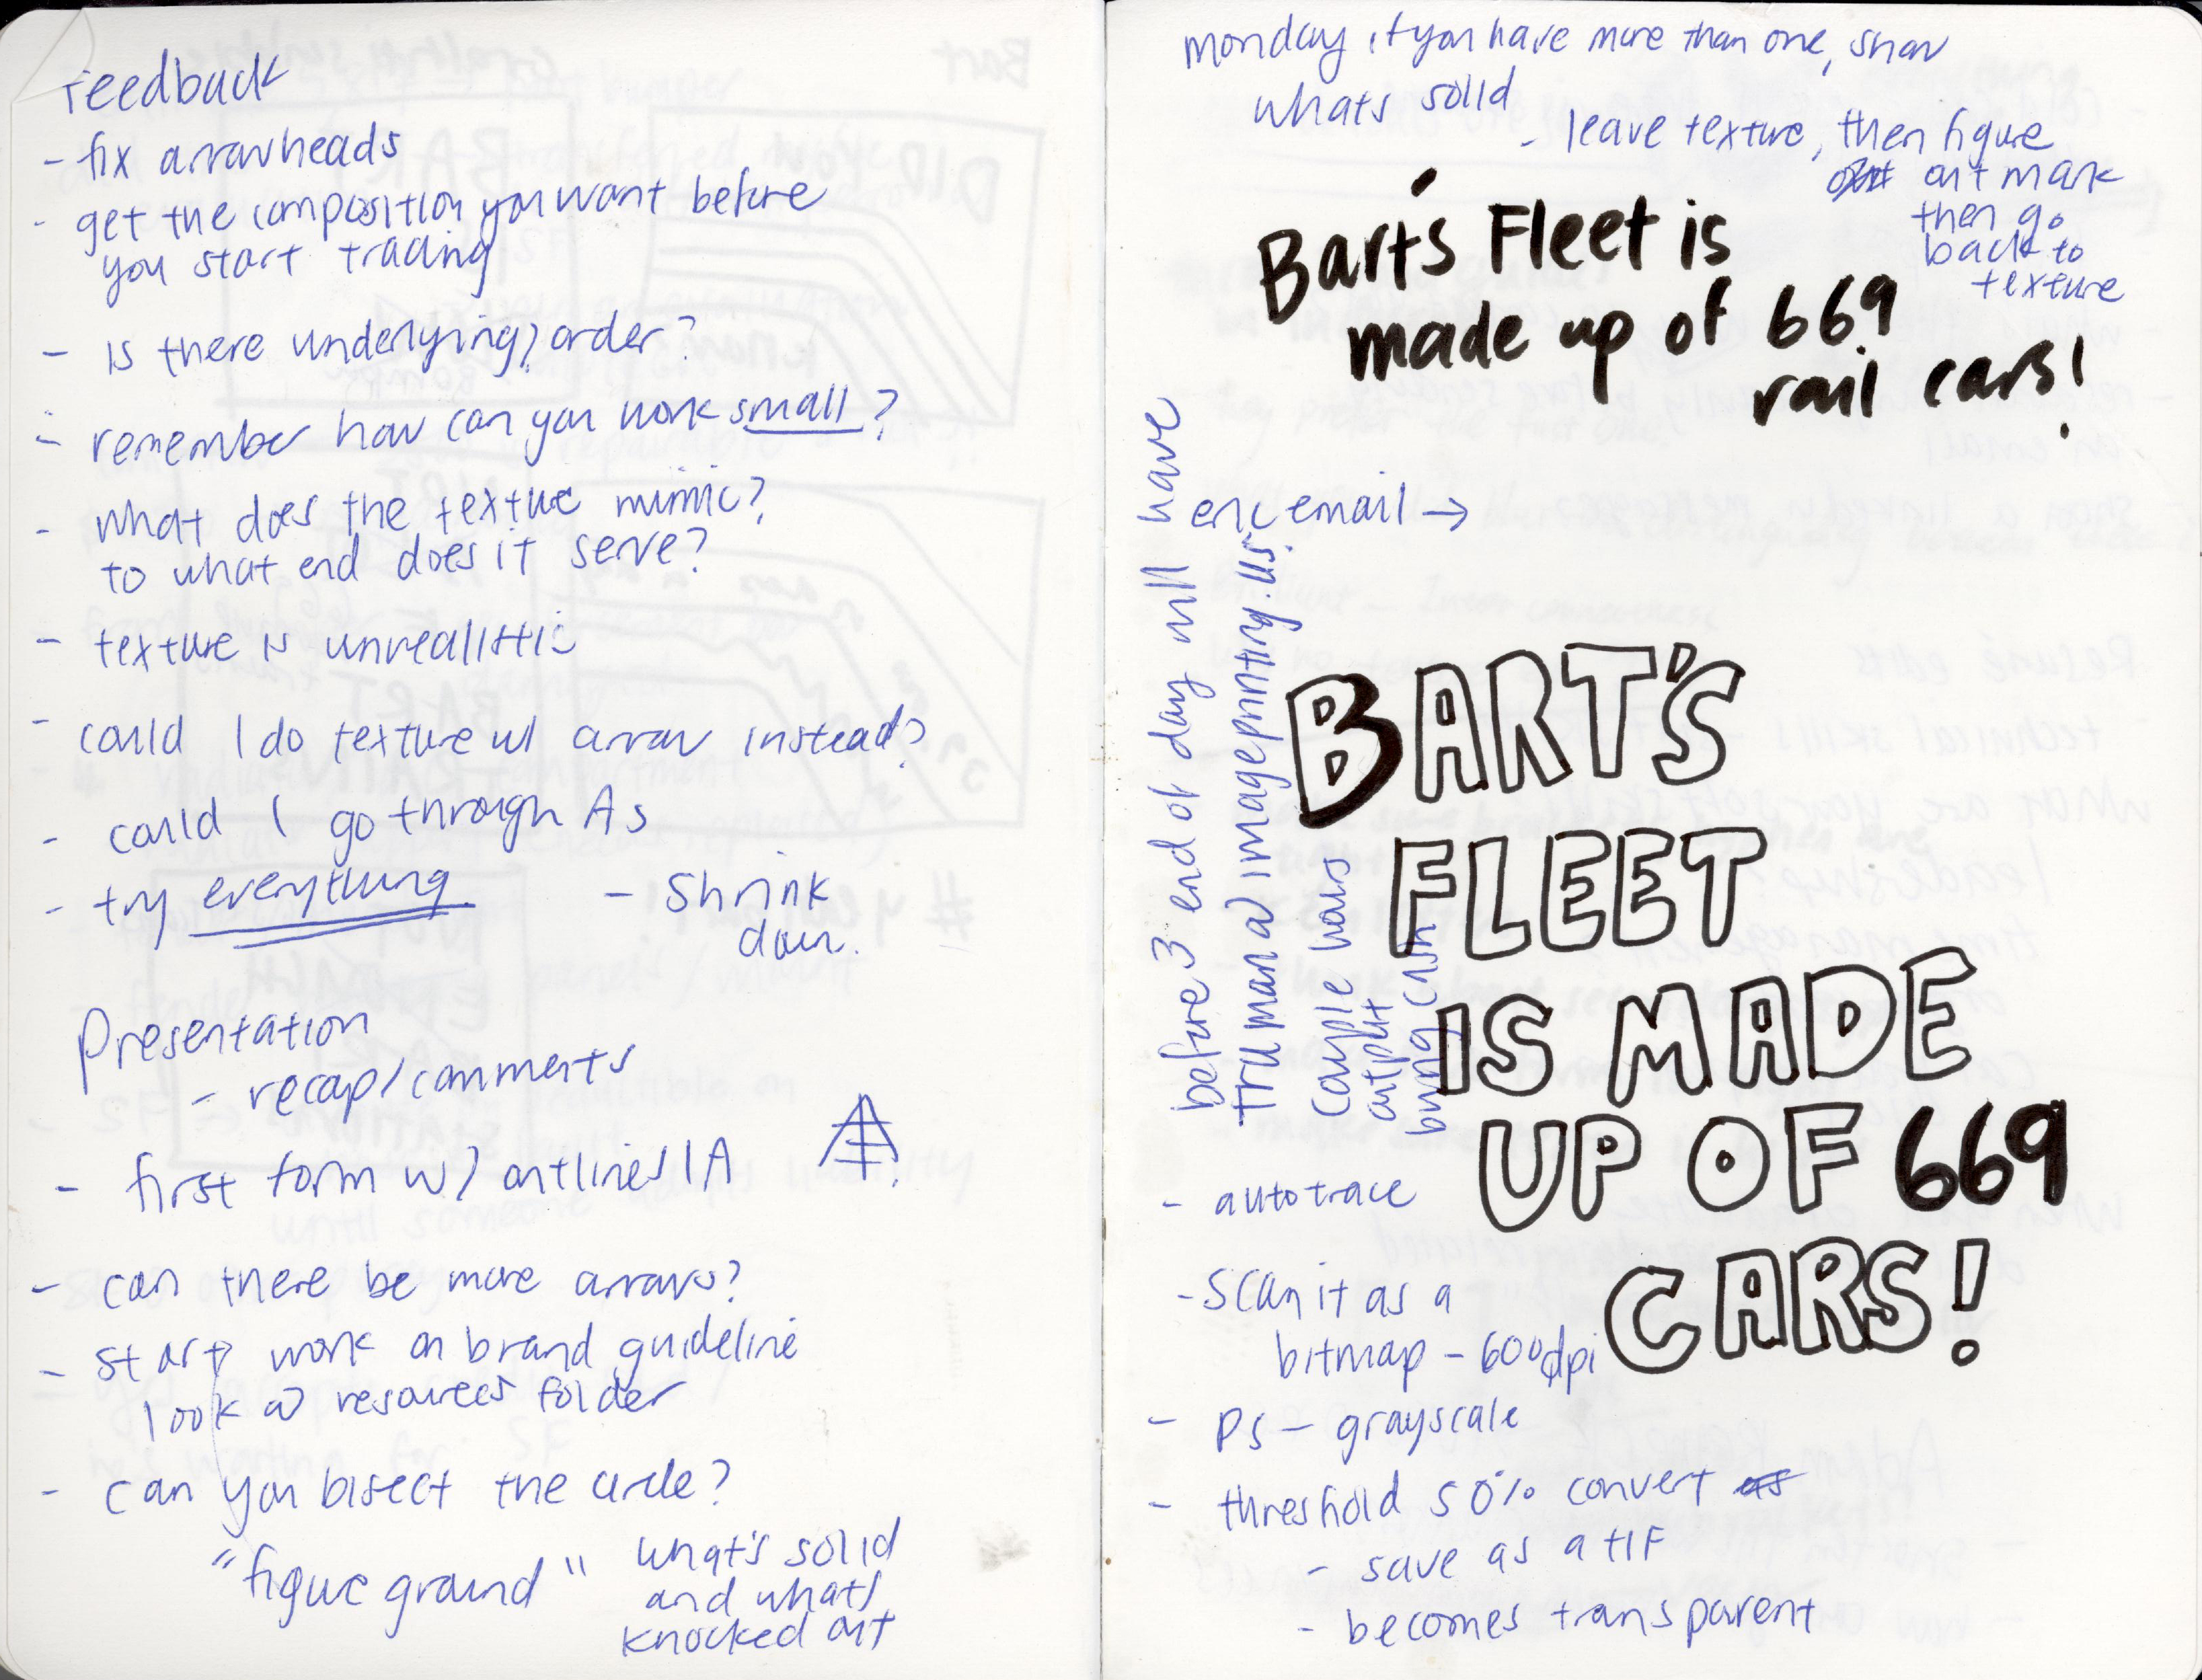 feedback
- fix arrowheads
- get the composition you want before
you start tracing
- is there underlying order?
- remember how can you work small?
- what does the texture mimic?
to what end does it serve?
- texture is unrealistic
- could I do texture w/ arrow instead?
- could I go through As
- try everything
- shrink
down.
Presentation
- recap/comments
- first form w/ outlines/A
- can there be more arrows?
- start work on brand guideline
look @ resources folder
- can you bisect the circle?
"figure ground"
what's solid
and whats
knocked out
monday if you have more than one, show
whats solid
- leave texture, then figure
out mark
then go
back to
texture
Bart's Fleet is
made up of 669
rail cars!
eric email →
before 3 end of day will have
truman@imageprinting.us
couple hours
output
bring cash
BART'S
FLEET
IS MADE
UP OF 669
CARS!
- autotrace
- scan it as a
bitmap - 600dpi
- PS - grayscale
- threshold 50% convert as
- save as a tif
- becomes transparent